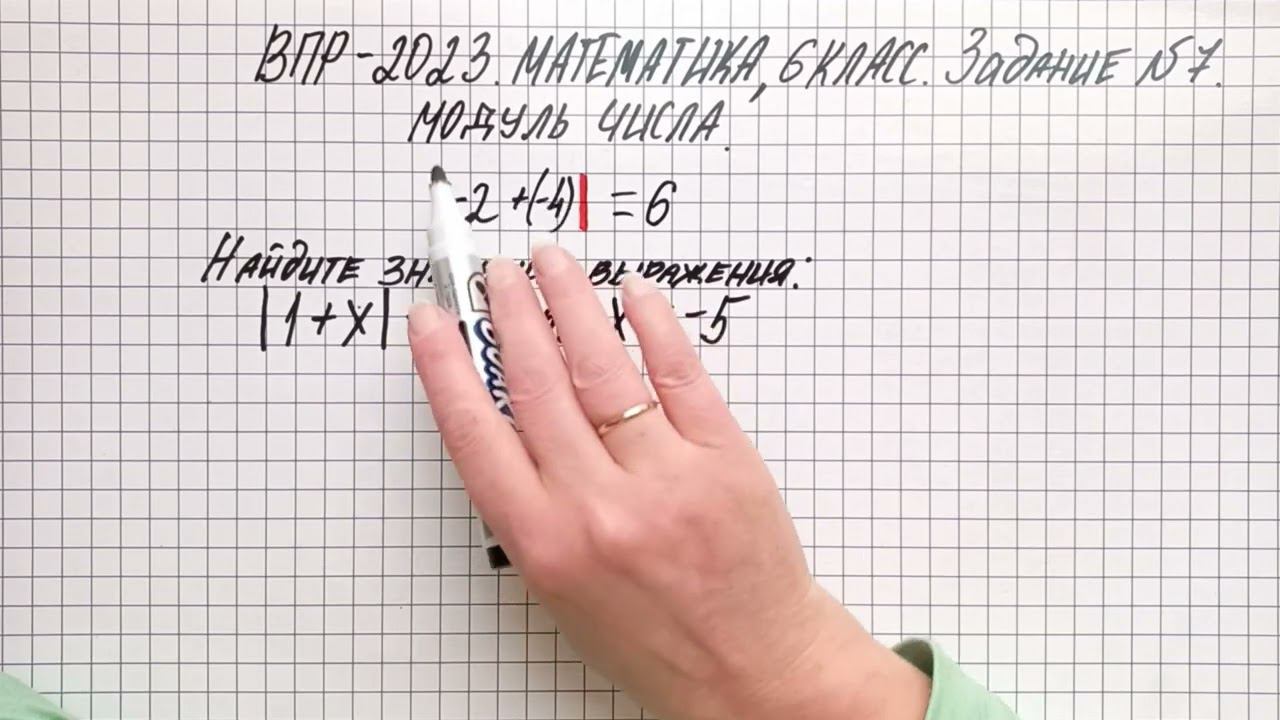 ВПР-2023. МАТЕМАТИКА, 6 КЛАСС. ЗАДАНИЕ №7.
МОДУЛЬ ЧИСЛА.
-2 +(-4)| = 6
НАЙДИТЕ ВЫРАЖЕНИЯ:
|1+X| -5